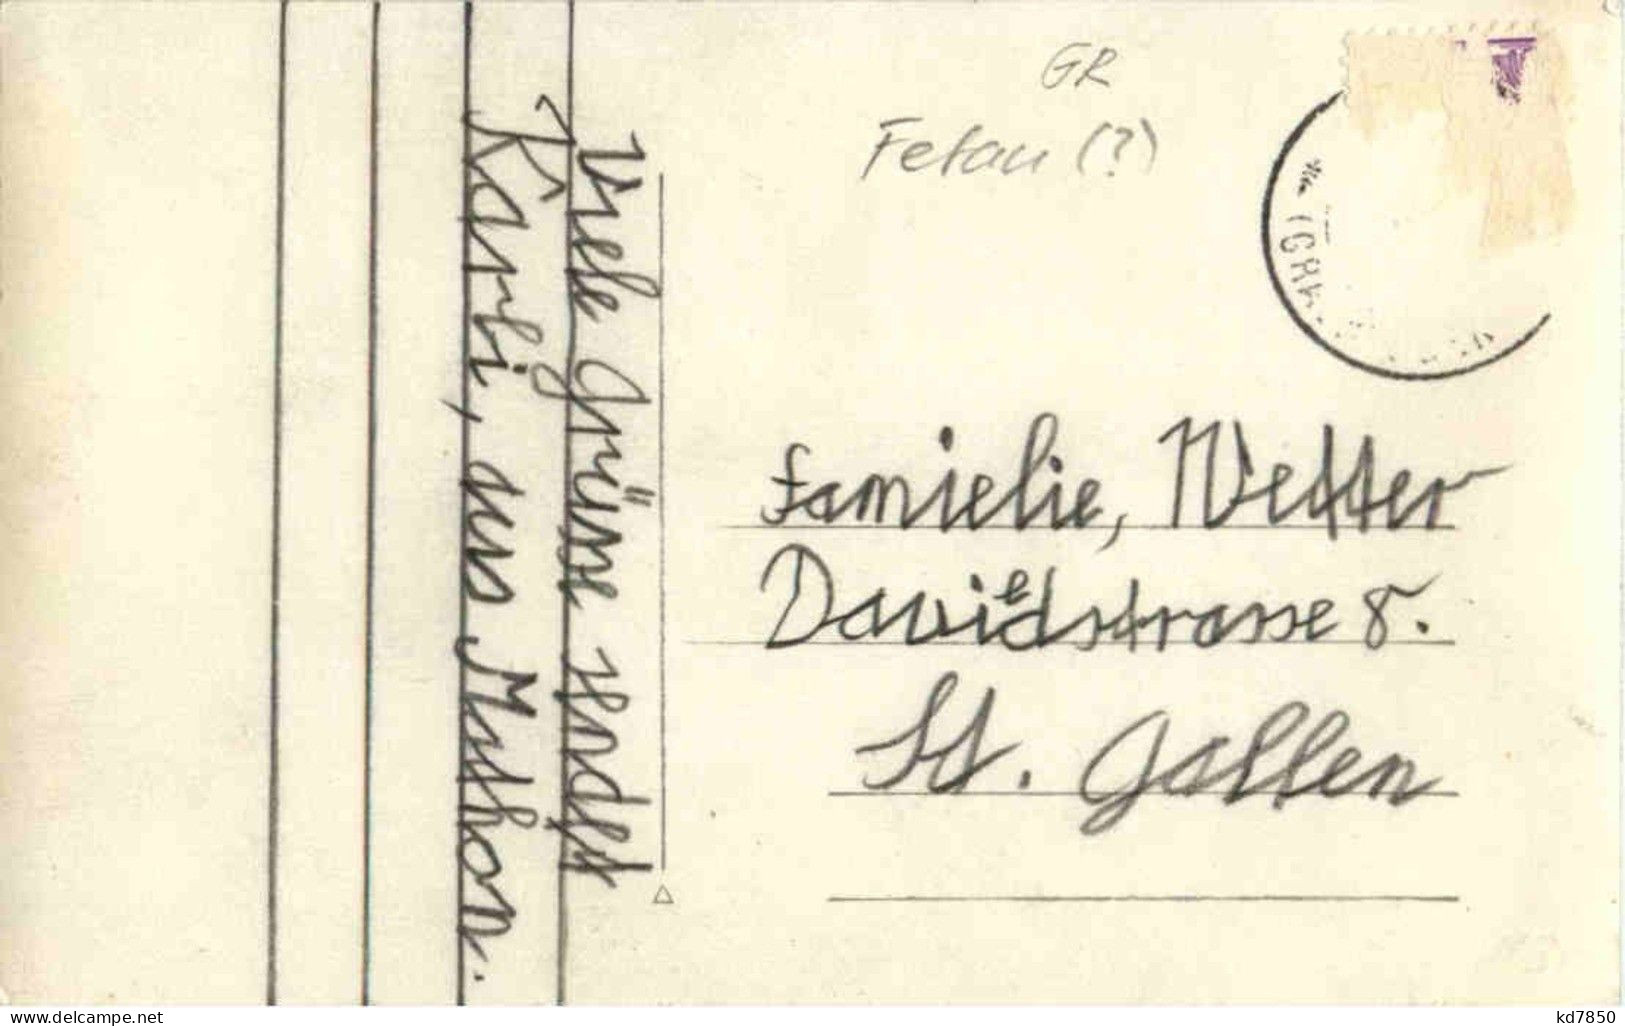 GR
Fetan (?)
Viele Grüsse sendet
Karli, aus Mathon.
Famielie, Wetter
Davidstrasse 8.
St. Gallen
delcampe.net
kd7850